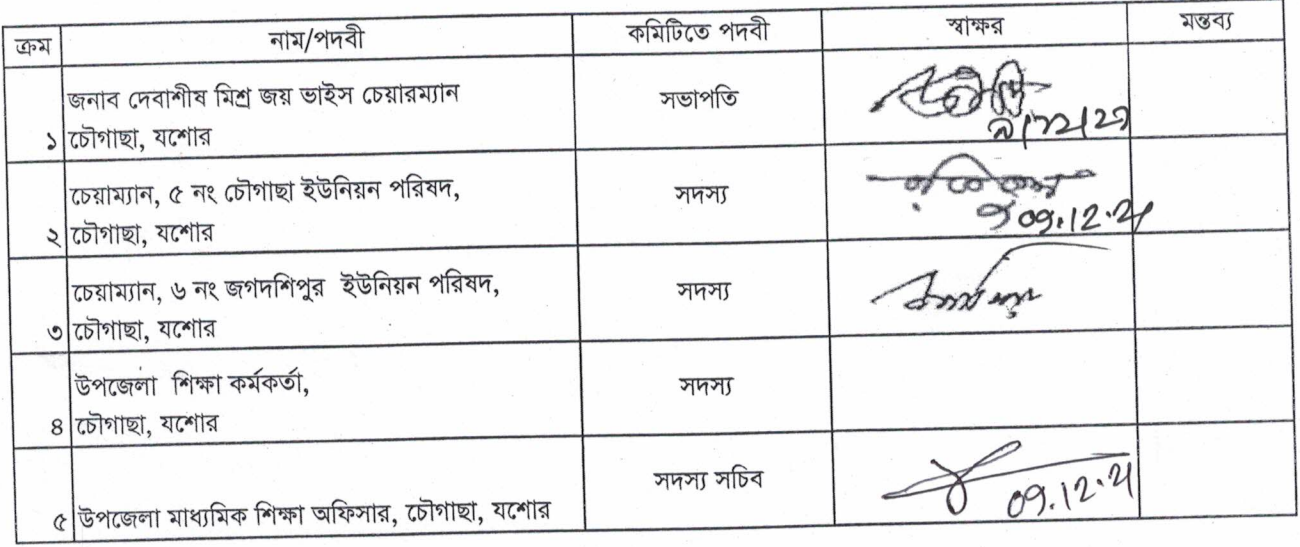 ক্রম নাম/পদবী কমিটিতে পদবী স্বাক্ষর মন্তব্য
জনাব দেবাশীষ মিশ্র জয় ভাইস চেয়ারম্যান
১ চৌগাছা, যশোর সভাপতি
চেয়াম্যান, ৫ নং চৌগাছা ইউনিয়ন পরিষদ,
২ চৌগাছা, যশোর সদস্য
09.12.21
চেয়াম্যান, ৬ নং জগদশিপুর ইউনিয়ন পরিষদ,
৩ চৌগাছা, যশোর সদস্য
উপজেলা শিক্ষা কর্মকর্তা,
৪ চৌগাছা, যশোর সদস্য
সদস্য সচিব
৫ উপজেলা মাধ্যমিক শিক্ষা অফিসার, চৌগাছা, যশোর
09.12.21